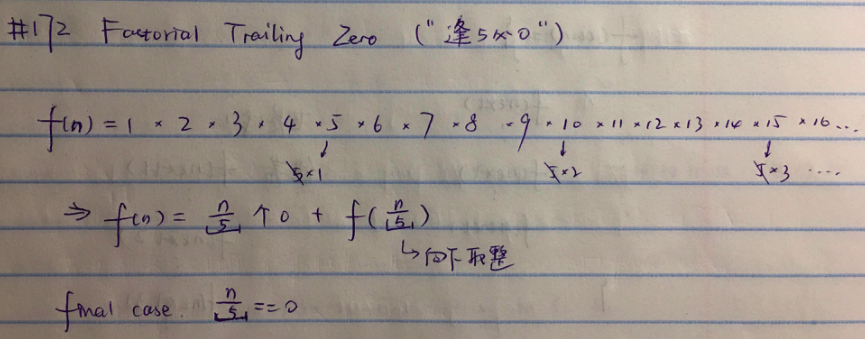 #172 Factorial Trailing Zero ("逢5必0")
f(n) = 1 × 2 × 3 × 4 × 5 × 6 × 7 × 8 × 9 × 10 × 11 × 12 × 13 × 14 × 15 × 16 ...
↓ ↓ ↓
5×1 5×2 5×3 ....
⇒ f(n) = ⌊n/5⌋ 个0 + f(⌊n/5⌋)
↳向下取整
final case. ⌊n/5⌋ == 0